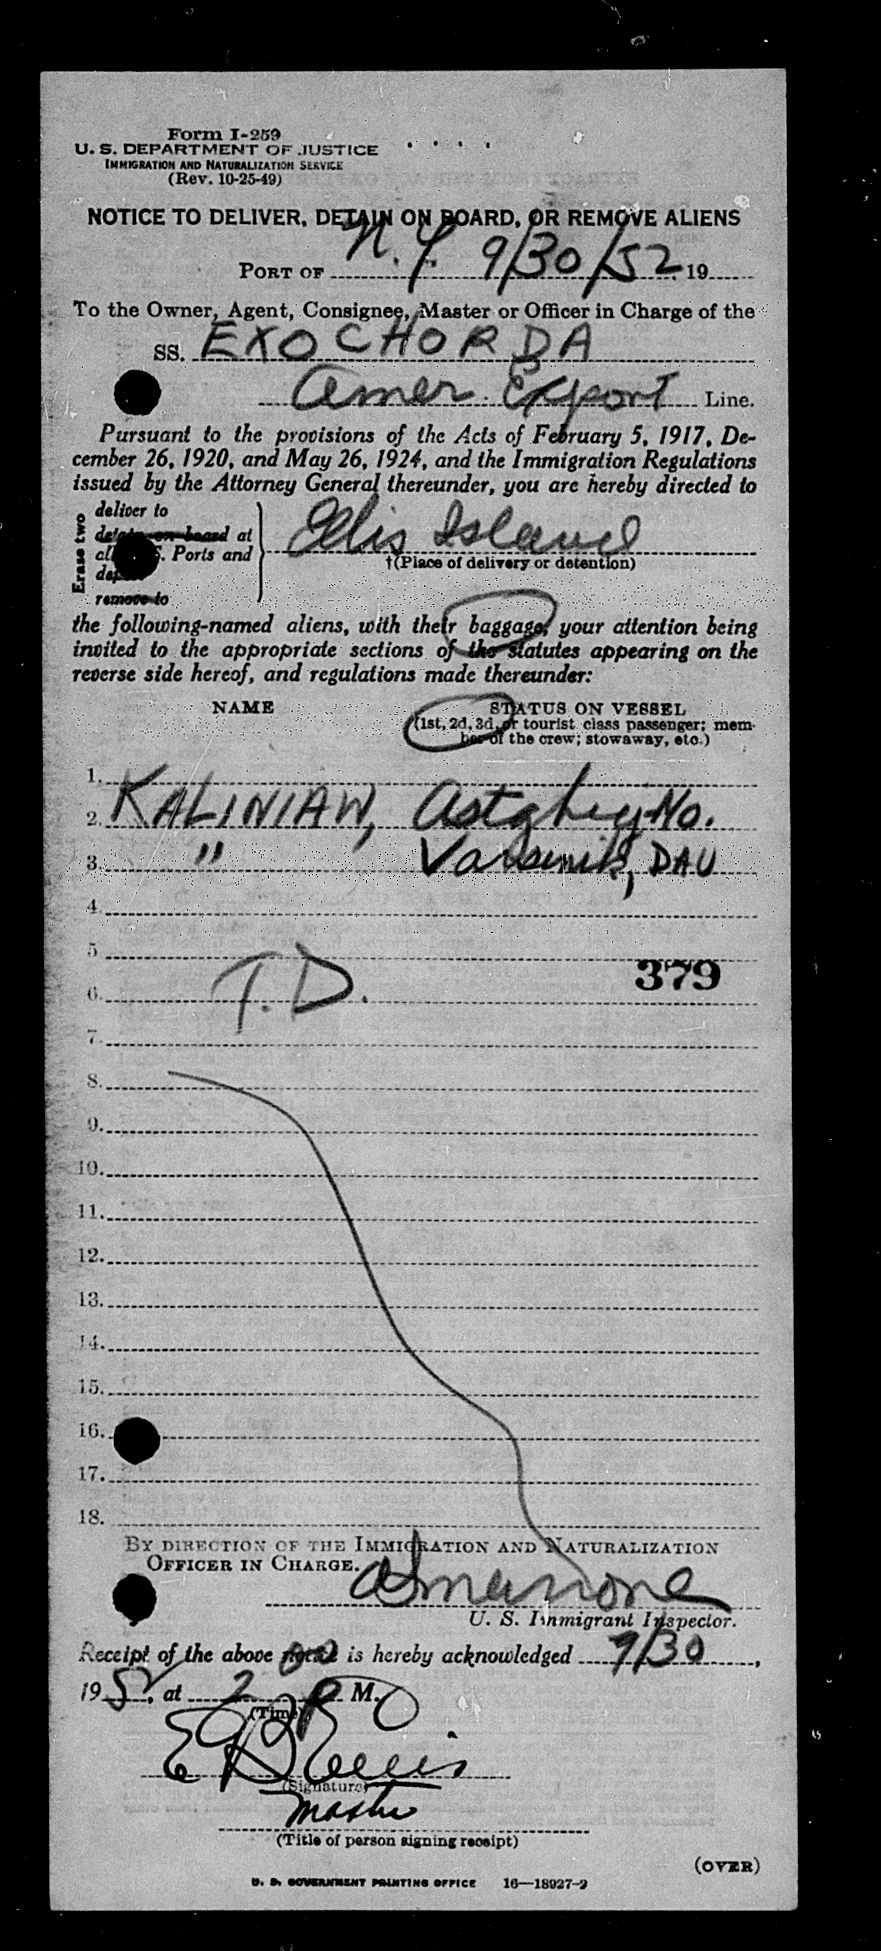 Form I-259
U. S. DEPARTMENT OF JUSTICE
IMMIGRATION AND NATURALIZATION SERVICE
(Rev. 10-25-49)
NOTICE TO DELIVER, DETAIN ON BOARD, OR REMOVE ALIENS
PORT OF N.Y. 9/30/52 19
To the Owner, Agent, Consignee, Master or Officer in Charge of the
SS. EXOCHORDA
Amer. Export Line.
Pursuant to the provisions of the Acts of February 5, 1917, De-
cember 26, 1920, and May 26, 1924, and the Immigration Regulations
issued by the Attorney General thereunder, you are hereby directed to
Erase two
deliver to
detain on board at
S. Ports and
remove to
Ellis Island
†(Place of delivery or detention)
the following-named aliens, with their baggage, your attention being
invited to the appropriate sections of the statutes appearing on the
reverse side hereof, and regulations made thereunder:
NAME STATUS ON VESSEL
(1st, 2d, 3d, or tourist class passenger; mem-
ber of the crew; stowaway, etc.)
1.
2. KALINIAN, Astghig-Mo.
3. " Varsenik, DAU
4.
5
6. T.D. 379
7.
8.
9.
10.
11.
12.
13.
14.
15.
16.
17.
18.
BY DIRECTION OF THE IMMIGRATION AND NATURALIZATION
OFFICER IN CHARGE.
U. S. Immigrant Inspector.
Receipt of the above is hereby acknowledged 9/30,
1952, at 2 P M.
(Time)
(Signature)
Master
(Title of person signing receipt)
(OVER)
U. S. GOVERNMENT PRINTING OFFICE 16—18927-2